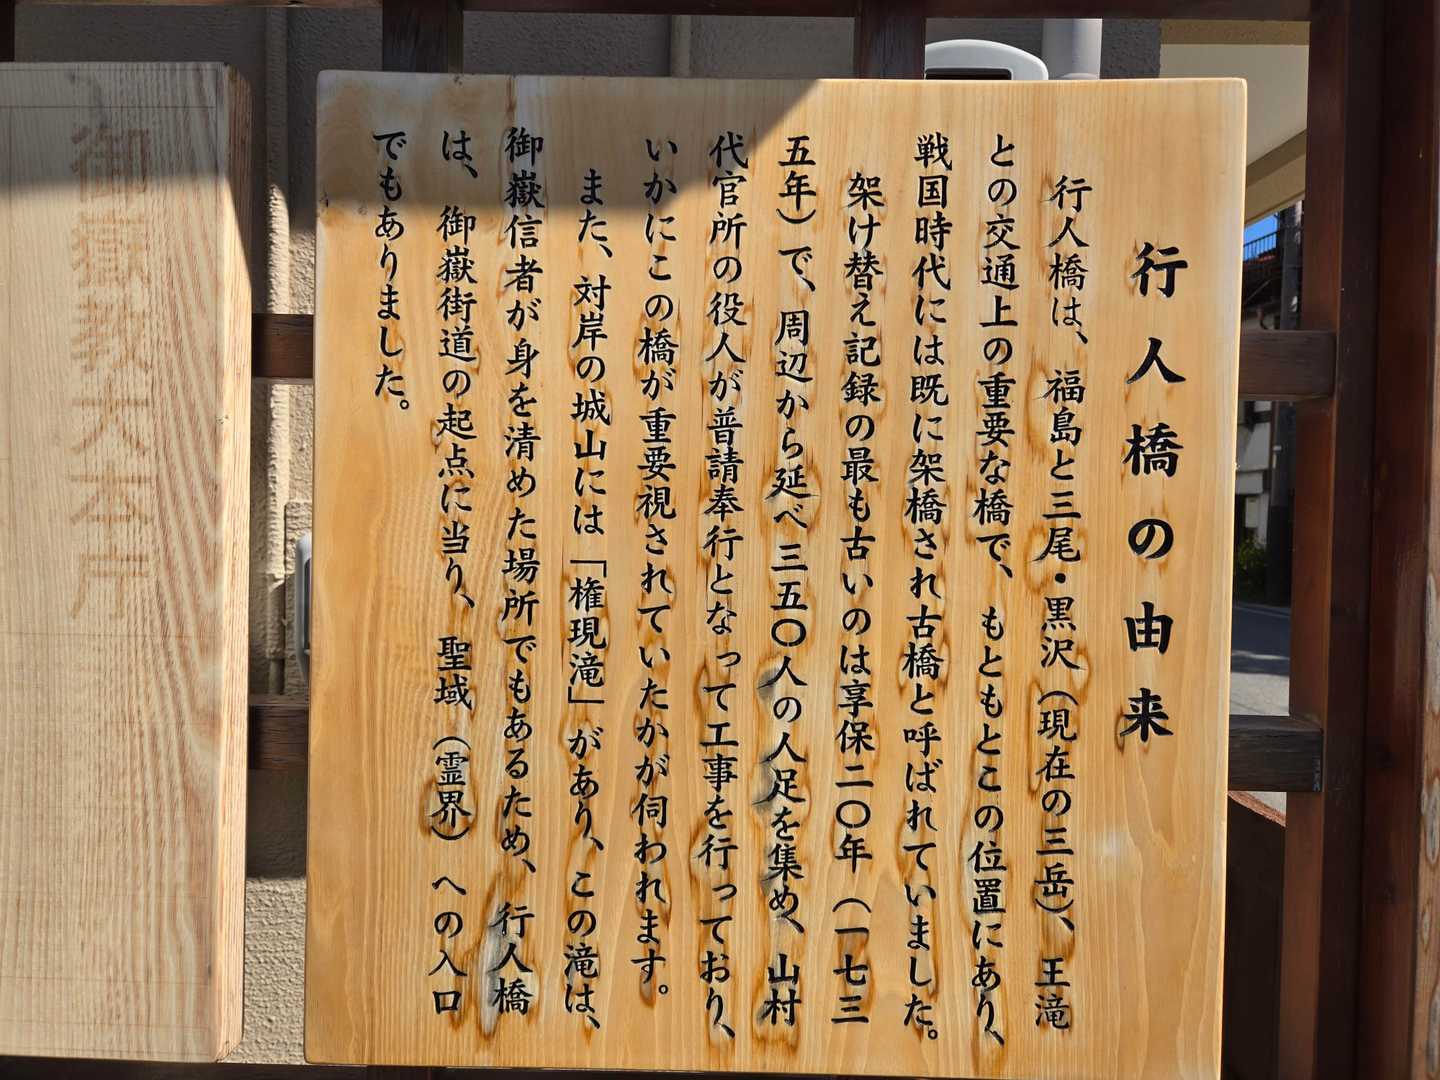 行人橋の由来
行人橋は、福島と三尾・黒沢（現在の三岳）、王滝
との交通上の重要な橋で、もともとこの位置にあり、
戦国時代には既に架橋され古橋と呼ばれていました。
架け替え記録の最も古いのは享保二〇年（一七三
五年）で、周辺から延べ三五〇人の人足を集め、山村
代官所の役人が普請奉行となって工事を行っており、
いかにこの橋が重要視されていたかが伺われます。
また、対岸の城山には「権現滝」があり、この滝は、
御嶽信者が身を清めた場所でもあるため、行人橋
は、御嶽街道の起点に当り、聖域（霊界）への入口
でもありました。
御嶽教大本庁